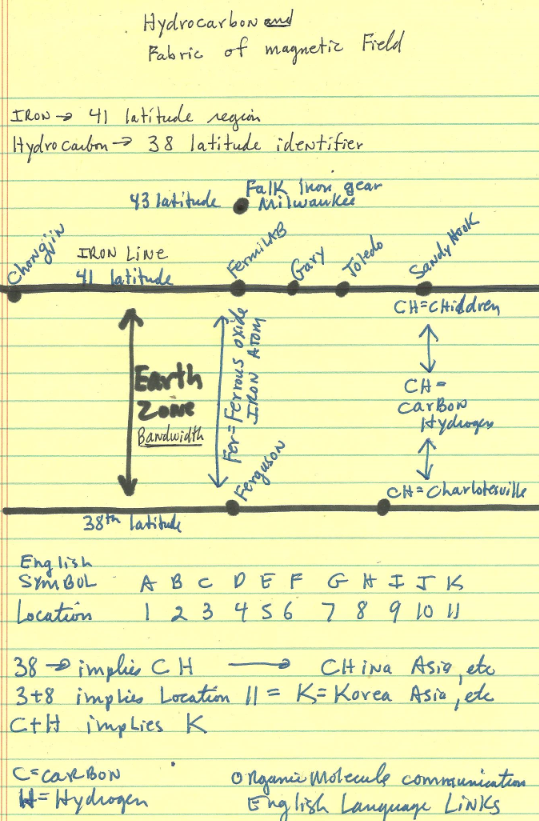 Hydrocarbon and
Fabric of magnetic Field
IRON → 41 latitude region
Hydrocarbon → 38 latitude identifier
43 latitude
Falk Iron gear
Milwaukee
Chongjin
IRON LINE
41 latitude
FermiLAB
Gary
Toledo
Sandy Hook
CH=CHildren
Earth
Zone
Bandwidth
Fer=Ferrous oxide
IRON ATOM
CH=
carbon
Hydrogen
Ferguson
CH=Charlotesville
38th latitude
English
SYMBOL A B C D E F G H I J K
Location 1 2 3 4 5 6 7 8 9 10 11
38 → implies CH → CHina Asia, etc
3+8 implies Location 11 = K = Korea Asia, etc
C+H implies K
C=CARBON
H=Hydrogen
Organic Molecule communication
English Language LINKS